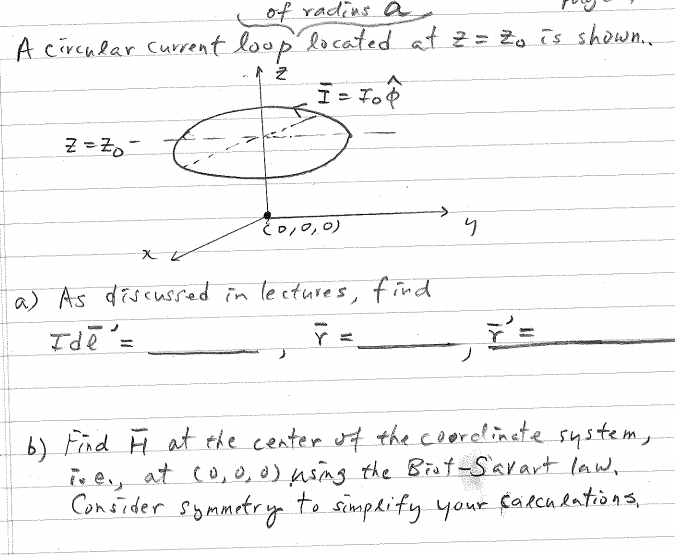 of radius a
A circular current loop located at z = z₀ is shown..
z
Ī = I₀ φ̂
z = z₀
(0,0,0)
y
x
a) As discussed in lectures, find
I dl̄' = ________, r̄ = ________, r̄' = ________
b) Find H̄ at the center of the coordinate system,
i.e., at (0,0,0) using the Biot-Savart law.
Consider symmetry to simplify your calculations.